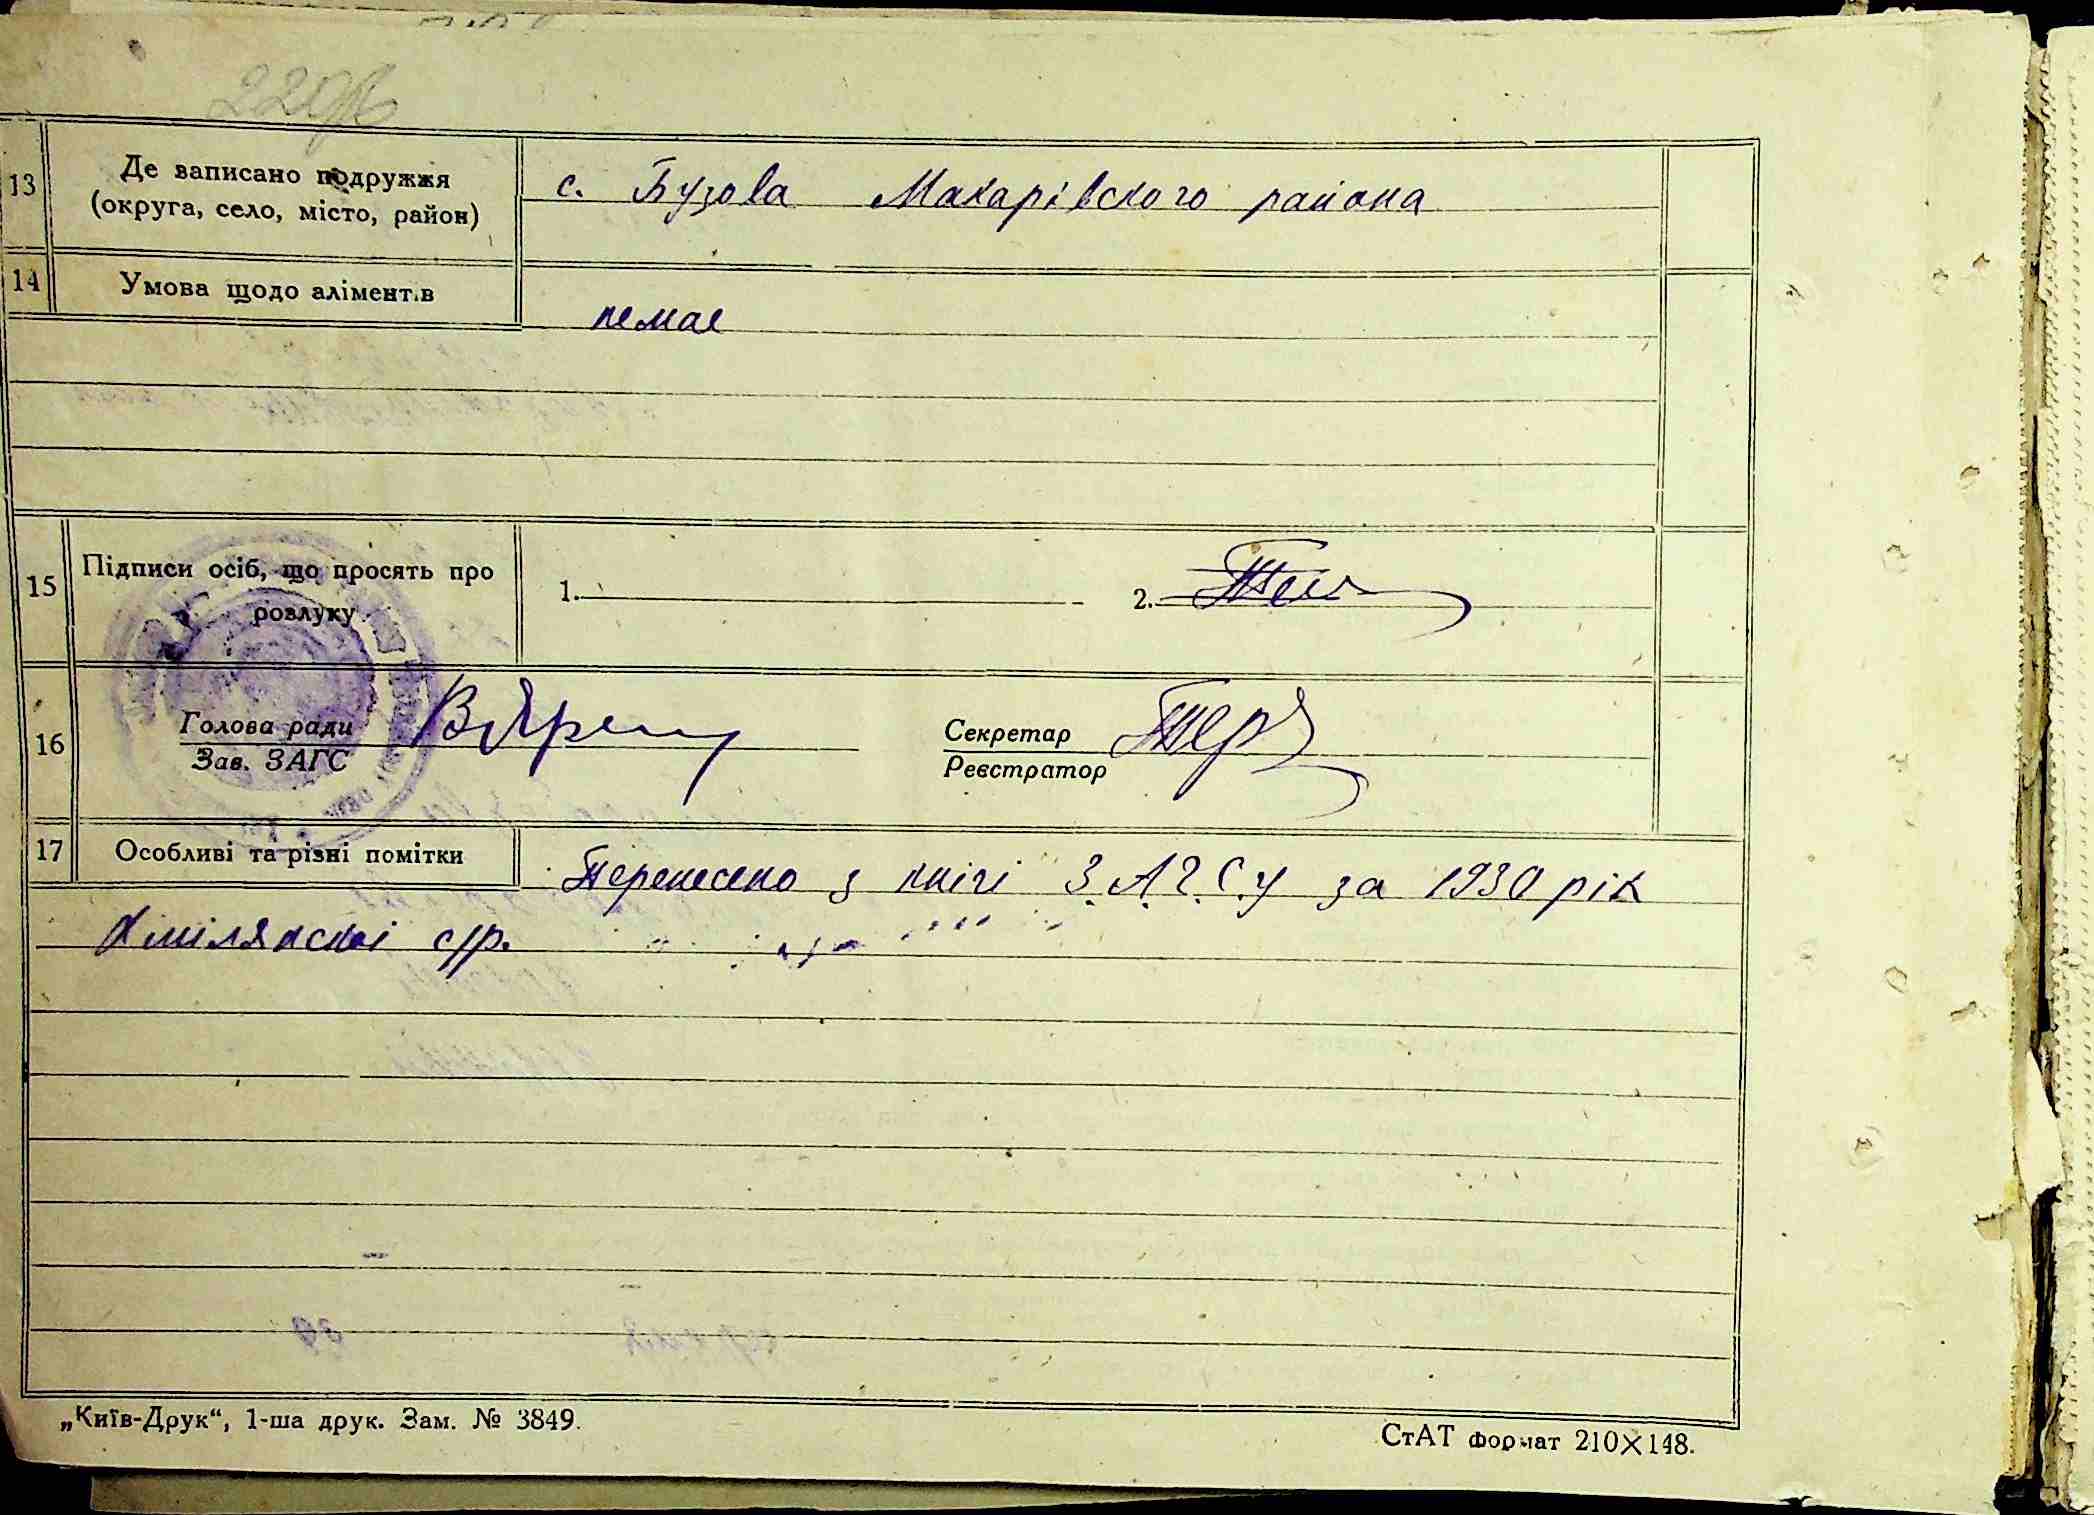 220
13
Де записано подружжя
(округа, село, місто, район)
с. Бузова Макарівского района
14
Умова щодо аліментів
немає
15
Підписи осіб, що просять про
розлуку
1.
2.
16
Голова ради
Зав. ЗАГС
Секретар
Реєстратор
17
Особливі та різні помітки
Перенесено з кнігі З.А.Г.С.у за 1930 рік
с/р.
„Київ-Друк“, 1-ша друк. Зам. № 3849.
СтАТ формат 210×148.